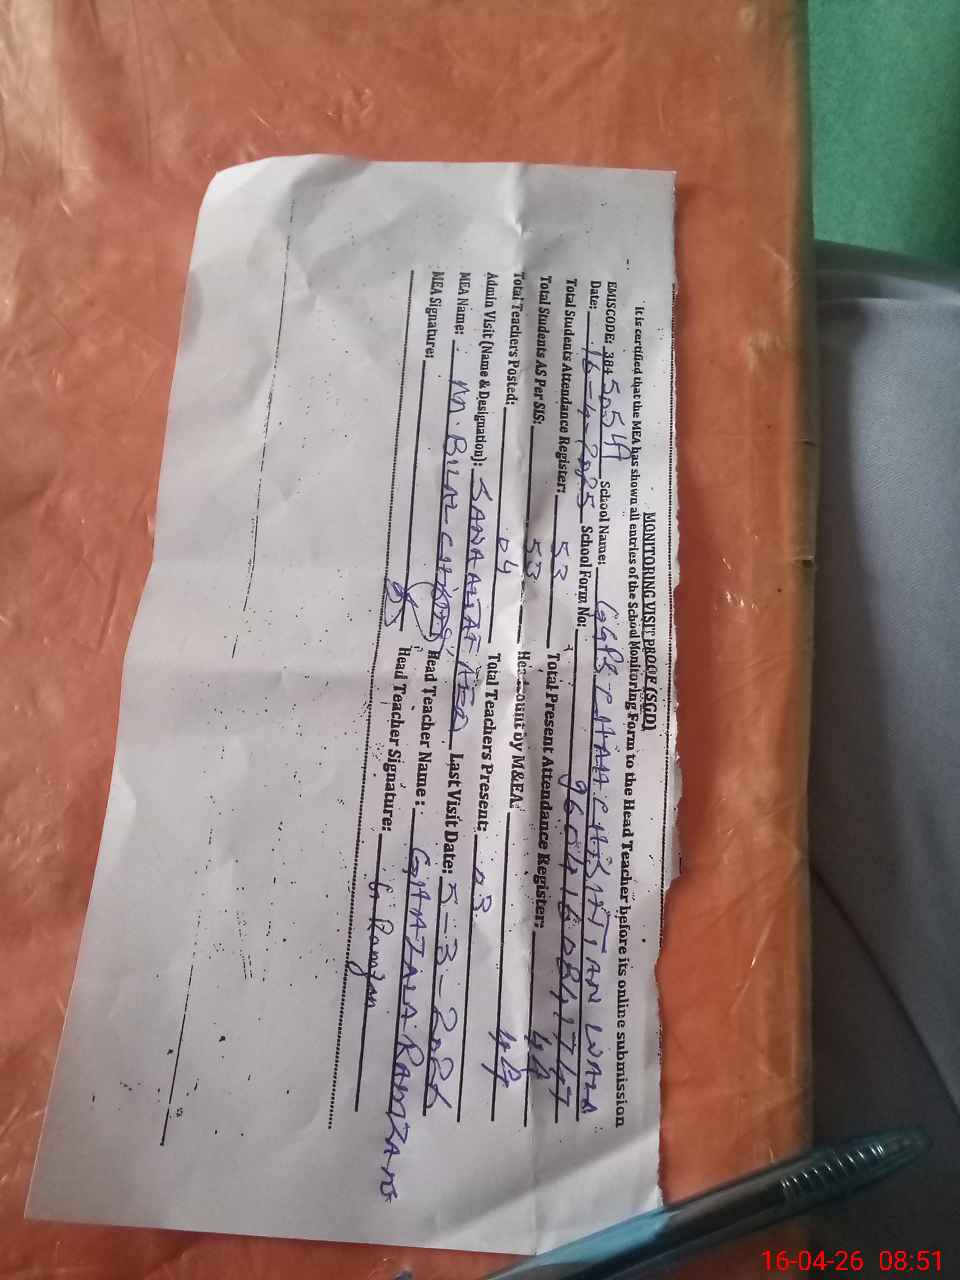 MONITORING VISIT PROOF (SGD)
It is certified that the MEA has shown all entries of the School Monitoring Form to the Head Teacher before its online submission
EMISCODE: 384 School Name: GGPS CHAH CHISHTIAN WALA
Date: 16-4-2025 School Form No:
Total Students Attendance Register: 53 Total Present Attendance Register: 44
Total Students AS Per SIS: 53 Headcount by M&EA: 44
Total Teachers Posted: 04 Total Teachers Present: 03
Admin Visit (Name & Designation): SANA ALTAF AEO Last Visit Date: 5-3-2026
MEA Name: M. BILAL Head Teacher Name: GHAZALA RAMZAN
MEA Signature: Head Teacher Signature: G. Ramzan
16-04-26 08:51